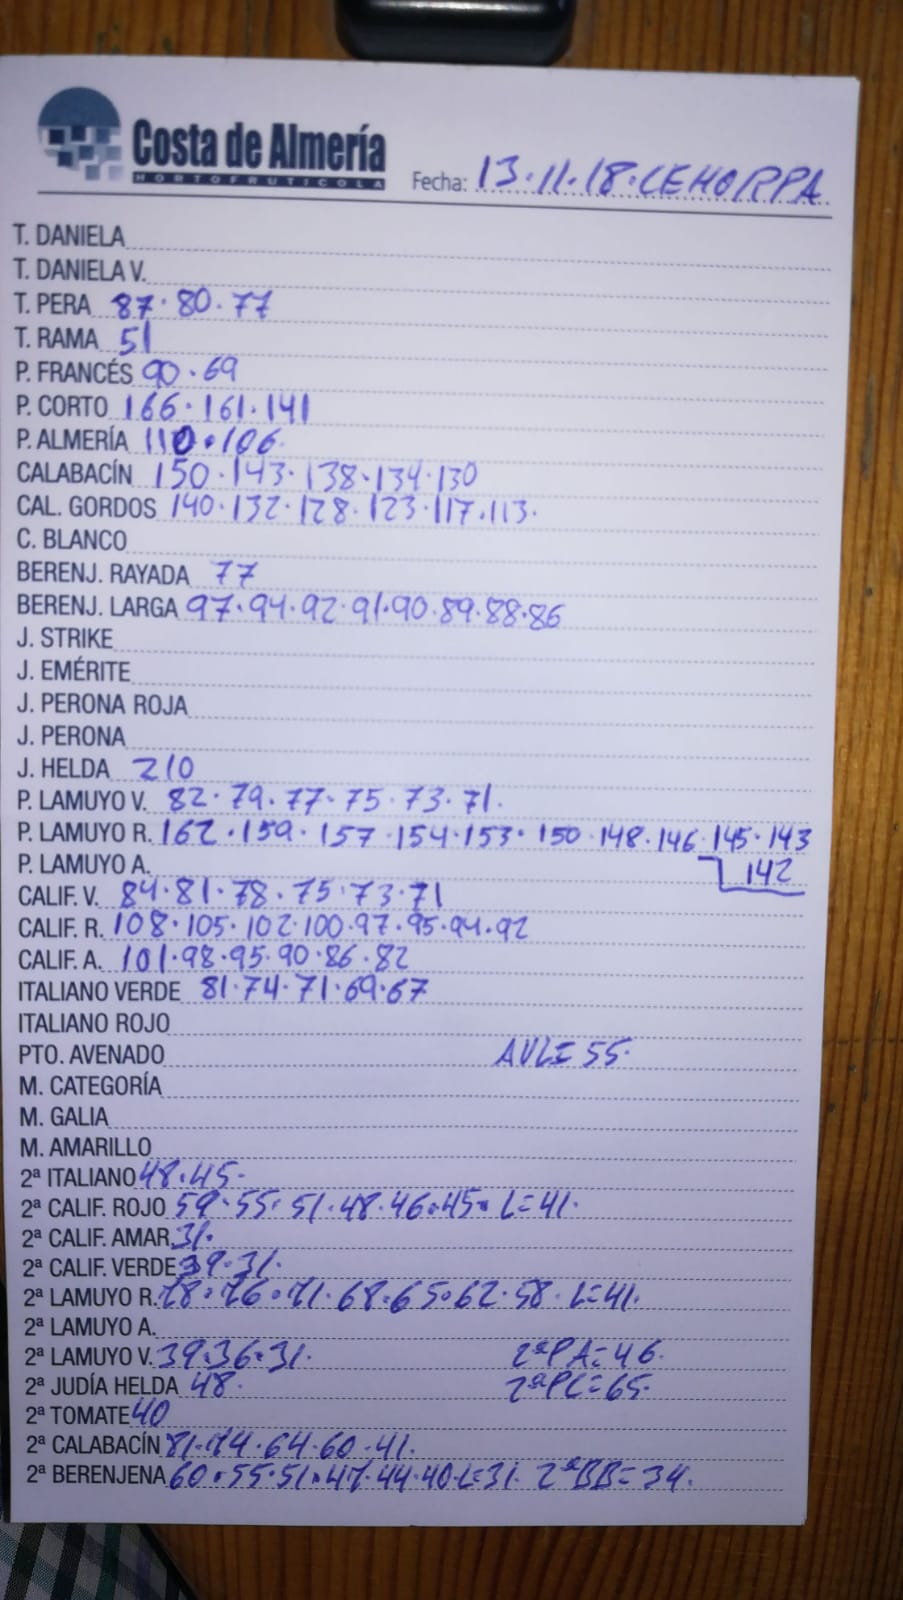 Costa de Almería
HORTOFRUTICOLA
Fecha: 13.11.18.CEHORPA
T. DANIELA
T. DANIELA V.
T. PERA 87.80.77
T. RAMA 51
P. FRANCÉS 90.69
P. CORTO 166.161.141
P. ALMERÍA 110.106.
CALABACÍN 150.143.138.134.130
CAL. GORDOS 140.132.128.123.117.113.
C. BLANCO
BERENJ. RAYADA 77
BERENJ. LARGA 97.94.92.91.90.89.88.86
J. STRIKE
J. EMÉRITE
J. PERONA ROJA
J. PERONA
J. HELDA 210
P. LAMUYO V. 82.79.77.75.73.71.
P. LAMUYO R. 162.159.157.154.153.150.148.146.145.143
P. LAMUYO A. 142
CALIF. V. 84.81.78.75.73.71
CALIF. R. 108.105.102.100.97.95.94.92
CALIF. A. 101.98.95.90.86.82
ITALIANO VERDE 81.74.71.69.67
ITALIANO ROJO
PTO. AVENADO AVL=55.
M. CATEGORÍA
M. GALIA
M. AMARILLO
2ª ITALIANO 48.45.
2ª CALIF. ROJO 59.55.51.48.46.45.L=41.
2ª CALIF. AMAR. 31.
2ª CALIF. VERDE 39.31.
2ª LAMUYO R. 78.76.71.68.65.62.58.L=41.
2ª LAMUYO A.
2ª LAMUYO V. 39.36.31. 2ªPA=46.
2ª JUDÍA HELDA 48. 2ªPC=65.
2ª TOMATE 40
2ª CALABACÍN 81.74.64.60.41.
2ª BERENJENA 60.55.51.47.44.40.L=31. 2ªBB=34.